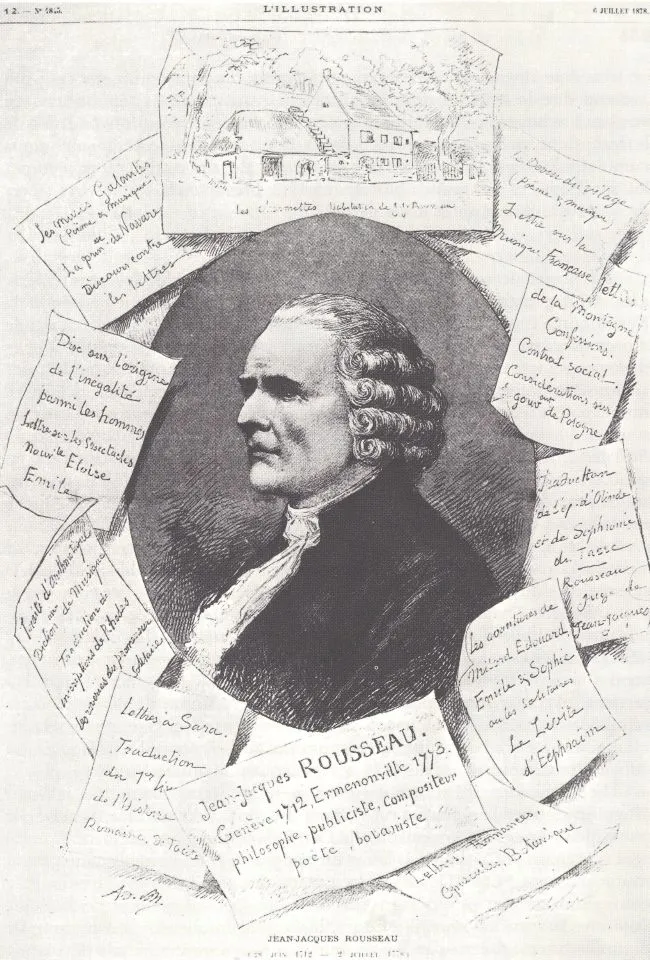 12. — N° 1845.
L'ILLUSTRATION
6 JUILLET 1878.
Les Charmettes habitation de J. J. Rousseau
Les muses Galantes
(Poème & musique)
et
La prin. de Navare
Discours contre
les lettres
Le Devin du village
(Poème & musique)
Lettre sur la
musique Française
lettres
de la Montagne
Confessions.
Contrat social.
Considérations sur
le gouv de Pologne
Disc sur l'origine
de l'inégalité
parmi les hommes
Lettre sur les Spectacles
Nouv le Eloïse
Emile
Traduction
de l'ép. d'Olinde
et de Sophronie
du Tasse
Rousseau
juge de
Jean-Jacques
Traité d'
Diction de Musique
Traduction de
inscriptions de
les rêveries du promeneur
solitaire
Les aventures de
Milord Edouard
Emile & Sophie
ou les solitaires
Le Lévite
d'Ephraïm
Lettres à Sara.
Traduction
du 1er liv
de l'Histoire
Romaine, de Tacite
Jean-Jacques ROUSSEAU.
Genève 1712, Ermenonville 1773.
philosophe, publiciste, compositeur
poète, botaniste
Lettres, Romances,
Opuscules, Botanique
JEAN-JACQUES ROUSSEAU
(28 JUIN 1712 — 2 JUILLET 1778)